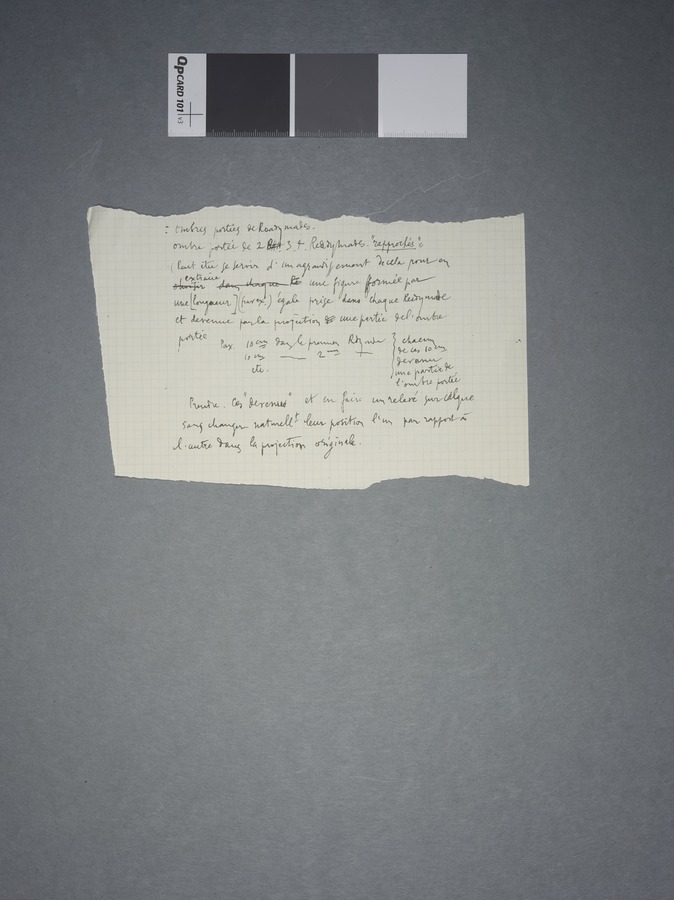 QPCARD 101 v3
: Ombres portées de Readymades.
ombre portée de 2, 3, 4 Readymades. "rapprochés"
(Peut être se servir d'un agrandissement de cela pour en
extraire
obtenir dans chaque une figure formée par
une [longueur] (par ex.) égale prise dans chaque Readymade
et devenue par la projection une partie de l'ombre
portée
Par ex. 10 cm dans le premier Rdymade
10 cm — 2ème —
etc.
chacun
de ces 10 cm
devenu
une partie de
l'ombre portée
Prendre. Ces "devenus" et en faire un relevé sur calque
sans changer naturellt leur position l'un par rapport à
l'autre dans la projection originale.